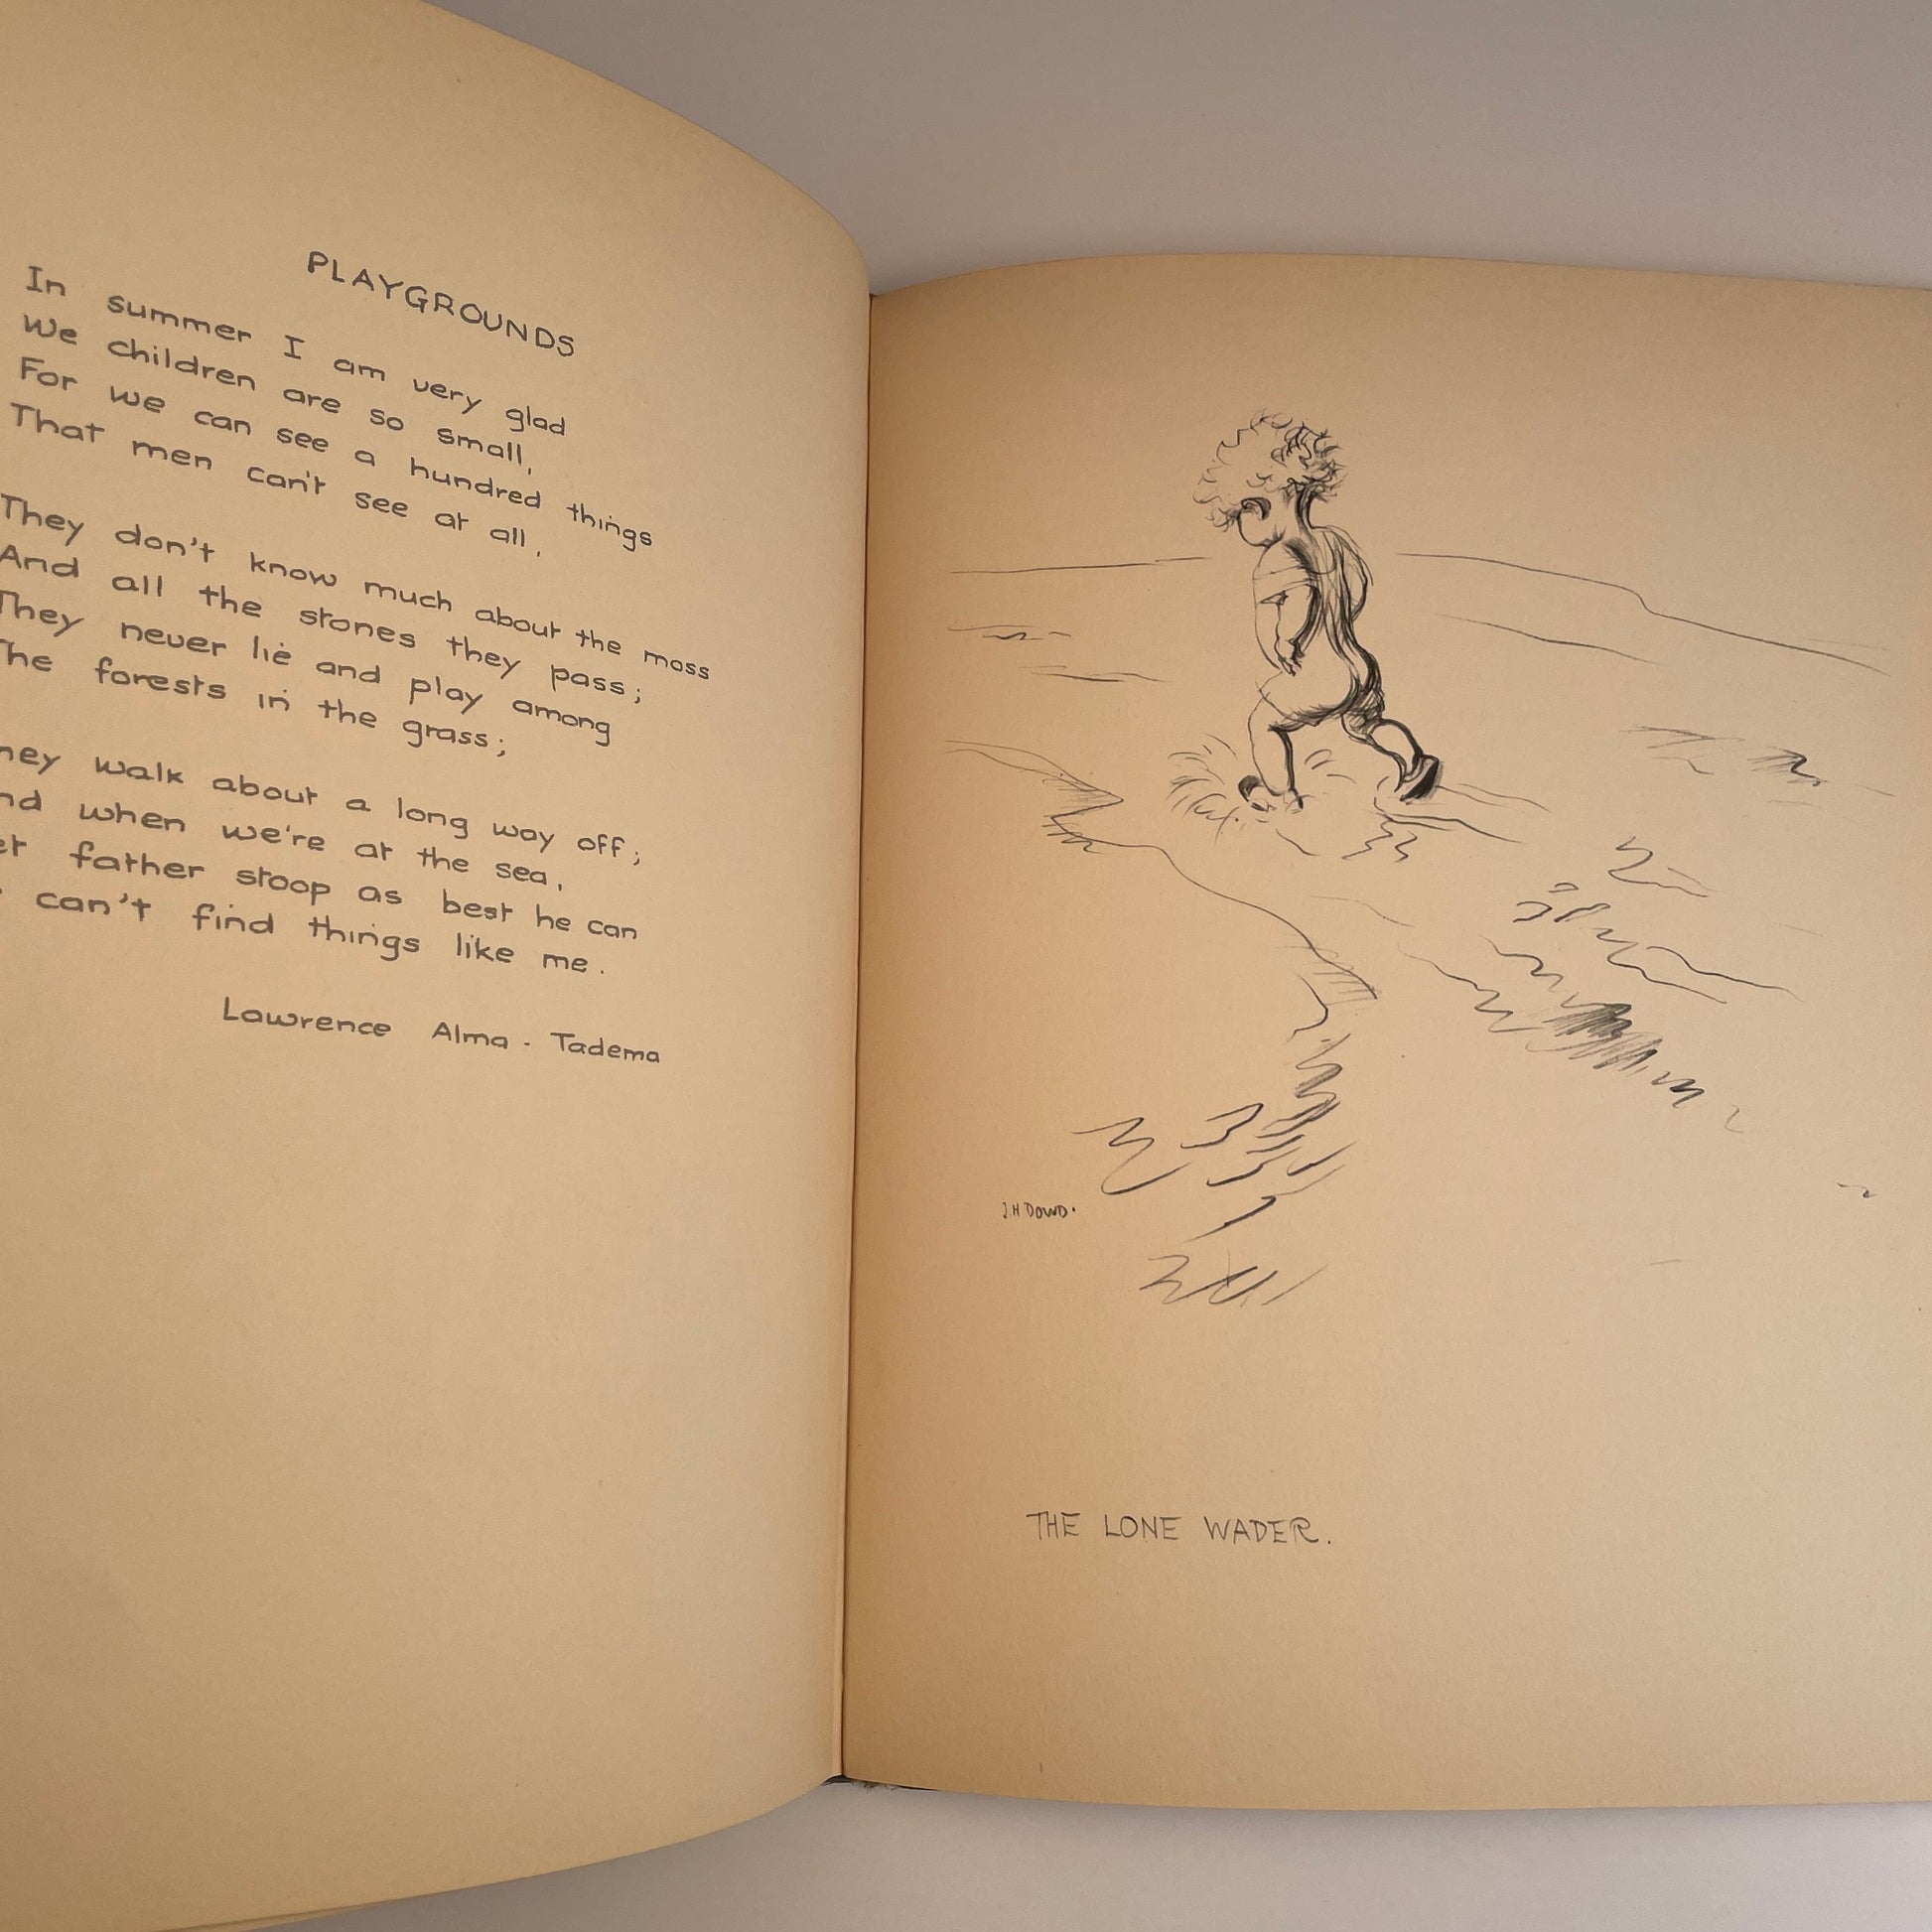 PLAYGROUNDS
In summer I am very glad
We children are so small,
For we can see a hundred things
That men can't see at all.
They don't know much about the moss
And all the stones they pass;
They never lie and play among
The forests in the grass;
walk about a long way off;
when we're at the sea,
father stoop as best he can
can't find things like me.
Lawrence Alma-Tadema
J.H DOWD.
THE LONE WADER.